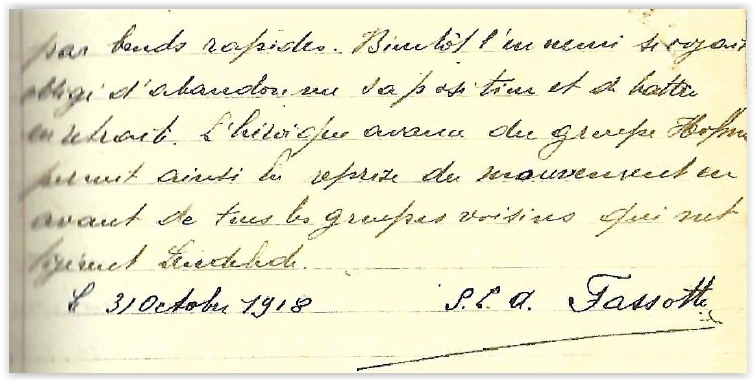 par bonds rapides. Bientôt l'ennemi se voyait
obligé d'abandonner sa position et de battre
en retrait. L'héroïque avance du groupe
permit ainsi la reprise du mouvement en
avant de tous les groupes voisins qui

Le 31 Octobre 1918 S.L.A. Fassotte